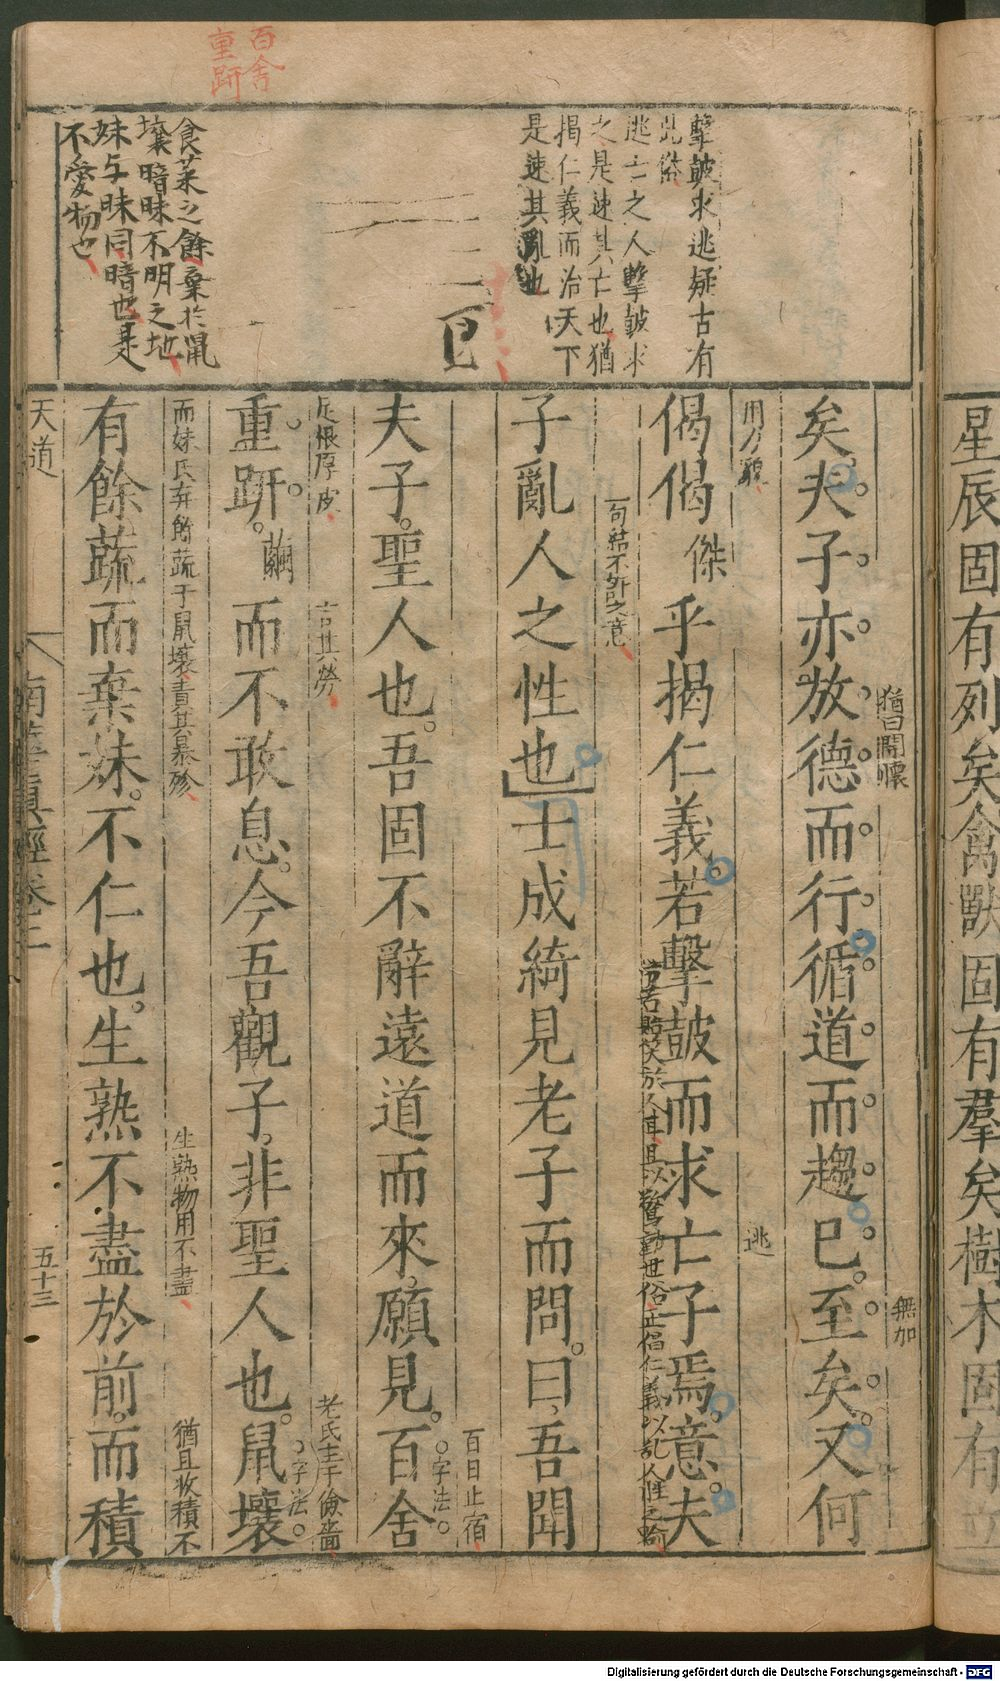 百舍
重趼
擊鼓求逃疑古有
此俗
逃亡之人擊鼓求
之是速其亡也猶
揭仁義而治天下
是速其亂也
食菜之餘棄於鼠
壤暗昧不明之地
妹与昧同暗也是
不愛物也
星辰固有列矣禽獸固有羣矣樹木固有立
猶曰開懷
無加
矣夫子亦放德而行循道而趨巳至矣又何
用力貌
逃
偈偈 傑 乎揭仁義若擊鼓而求亡子焉意夫
一句結不外之意
子亂人之性也士成綺見老子而問曰吾聞
百日止宿
夫子聖人也吾固不辭遠道而來願見百舍
字法
足根厚皮
言其勞
老氏主于儉嗇
重趼 繭 而不敢息今吾觀子非聖人也鼠壤
字法
而妹氏弃餘蔬于鼠壤責其暴殄
生熟物用不盡
猶且收積不
有餘蔬而棄妹不仁也生熟不盡於前而積
天道
南華眞經卷十二
五十三
Digitalisierung gefördert durch die Deutsche Forschungsgemeinschaft - DFG